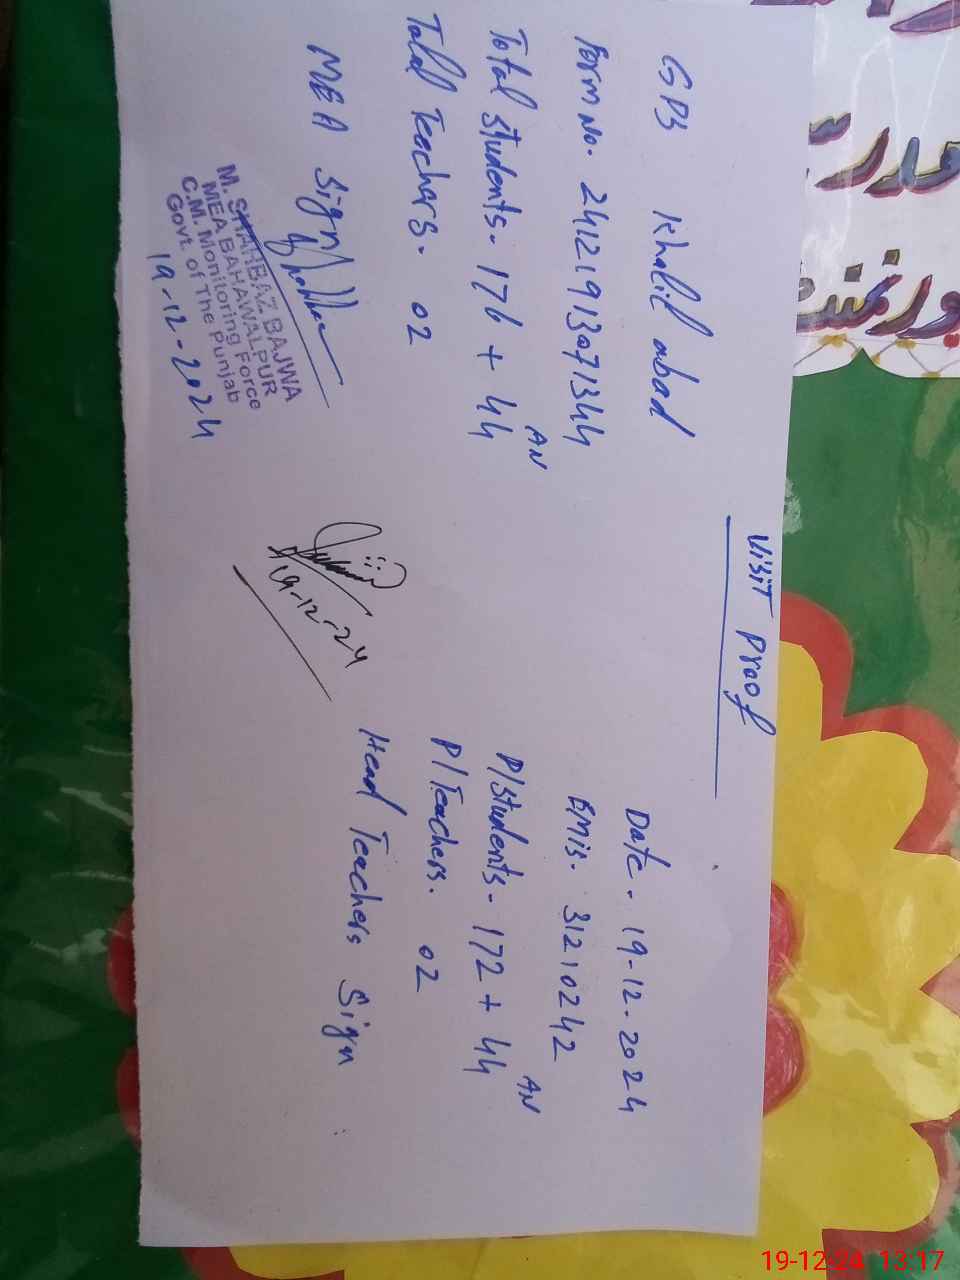 Visit Proof
GPS Khalil abad
Date - 19-12-2024
Form No. 24121913071344
Emis. 31210242
AN
Total Students - 176 + 44
AN
P/Students - 172 + 44
Total Teachars. 02
P/Teachers. 02
MEA Sign
Head Teachers Sign
M. SHAHBAZ BAJWA
MEA BAHAWALPUR
C.M. Monitoring Force
Govt. of The Punjab
19-12-2024
19-12-24
19-12-24 13:17